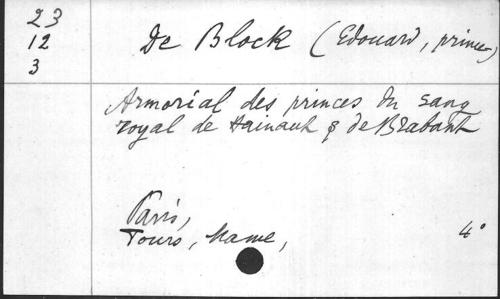 23
12
3
De Block (Edouard, prince)
Armorial des princes du sang
royal de Hainaut & de Brabant
Paris,
Tours, Mame,
4°